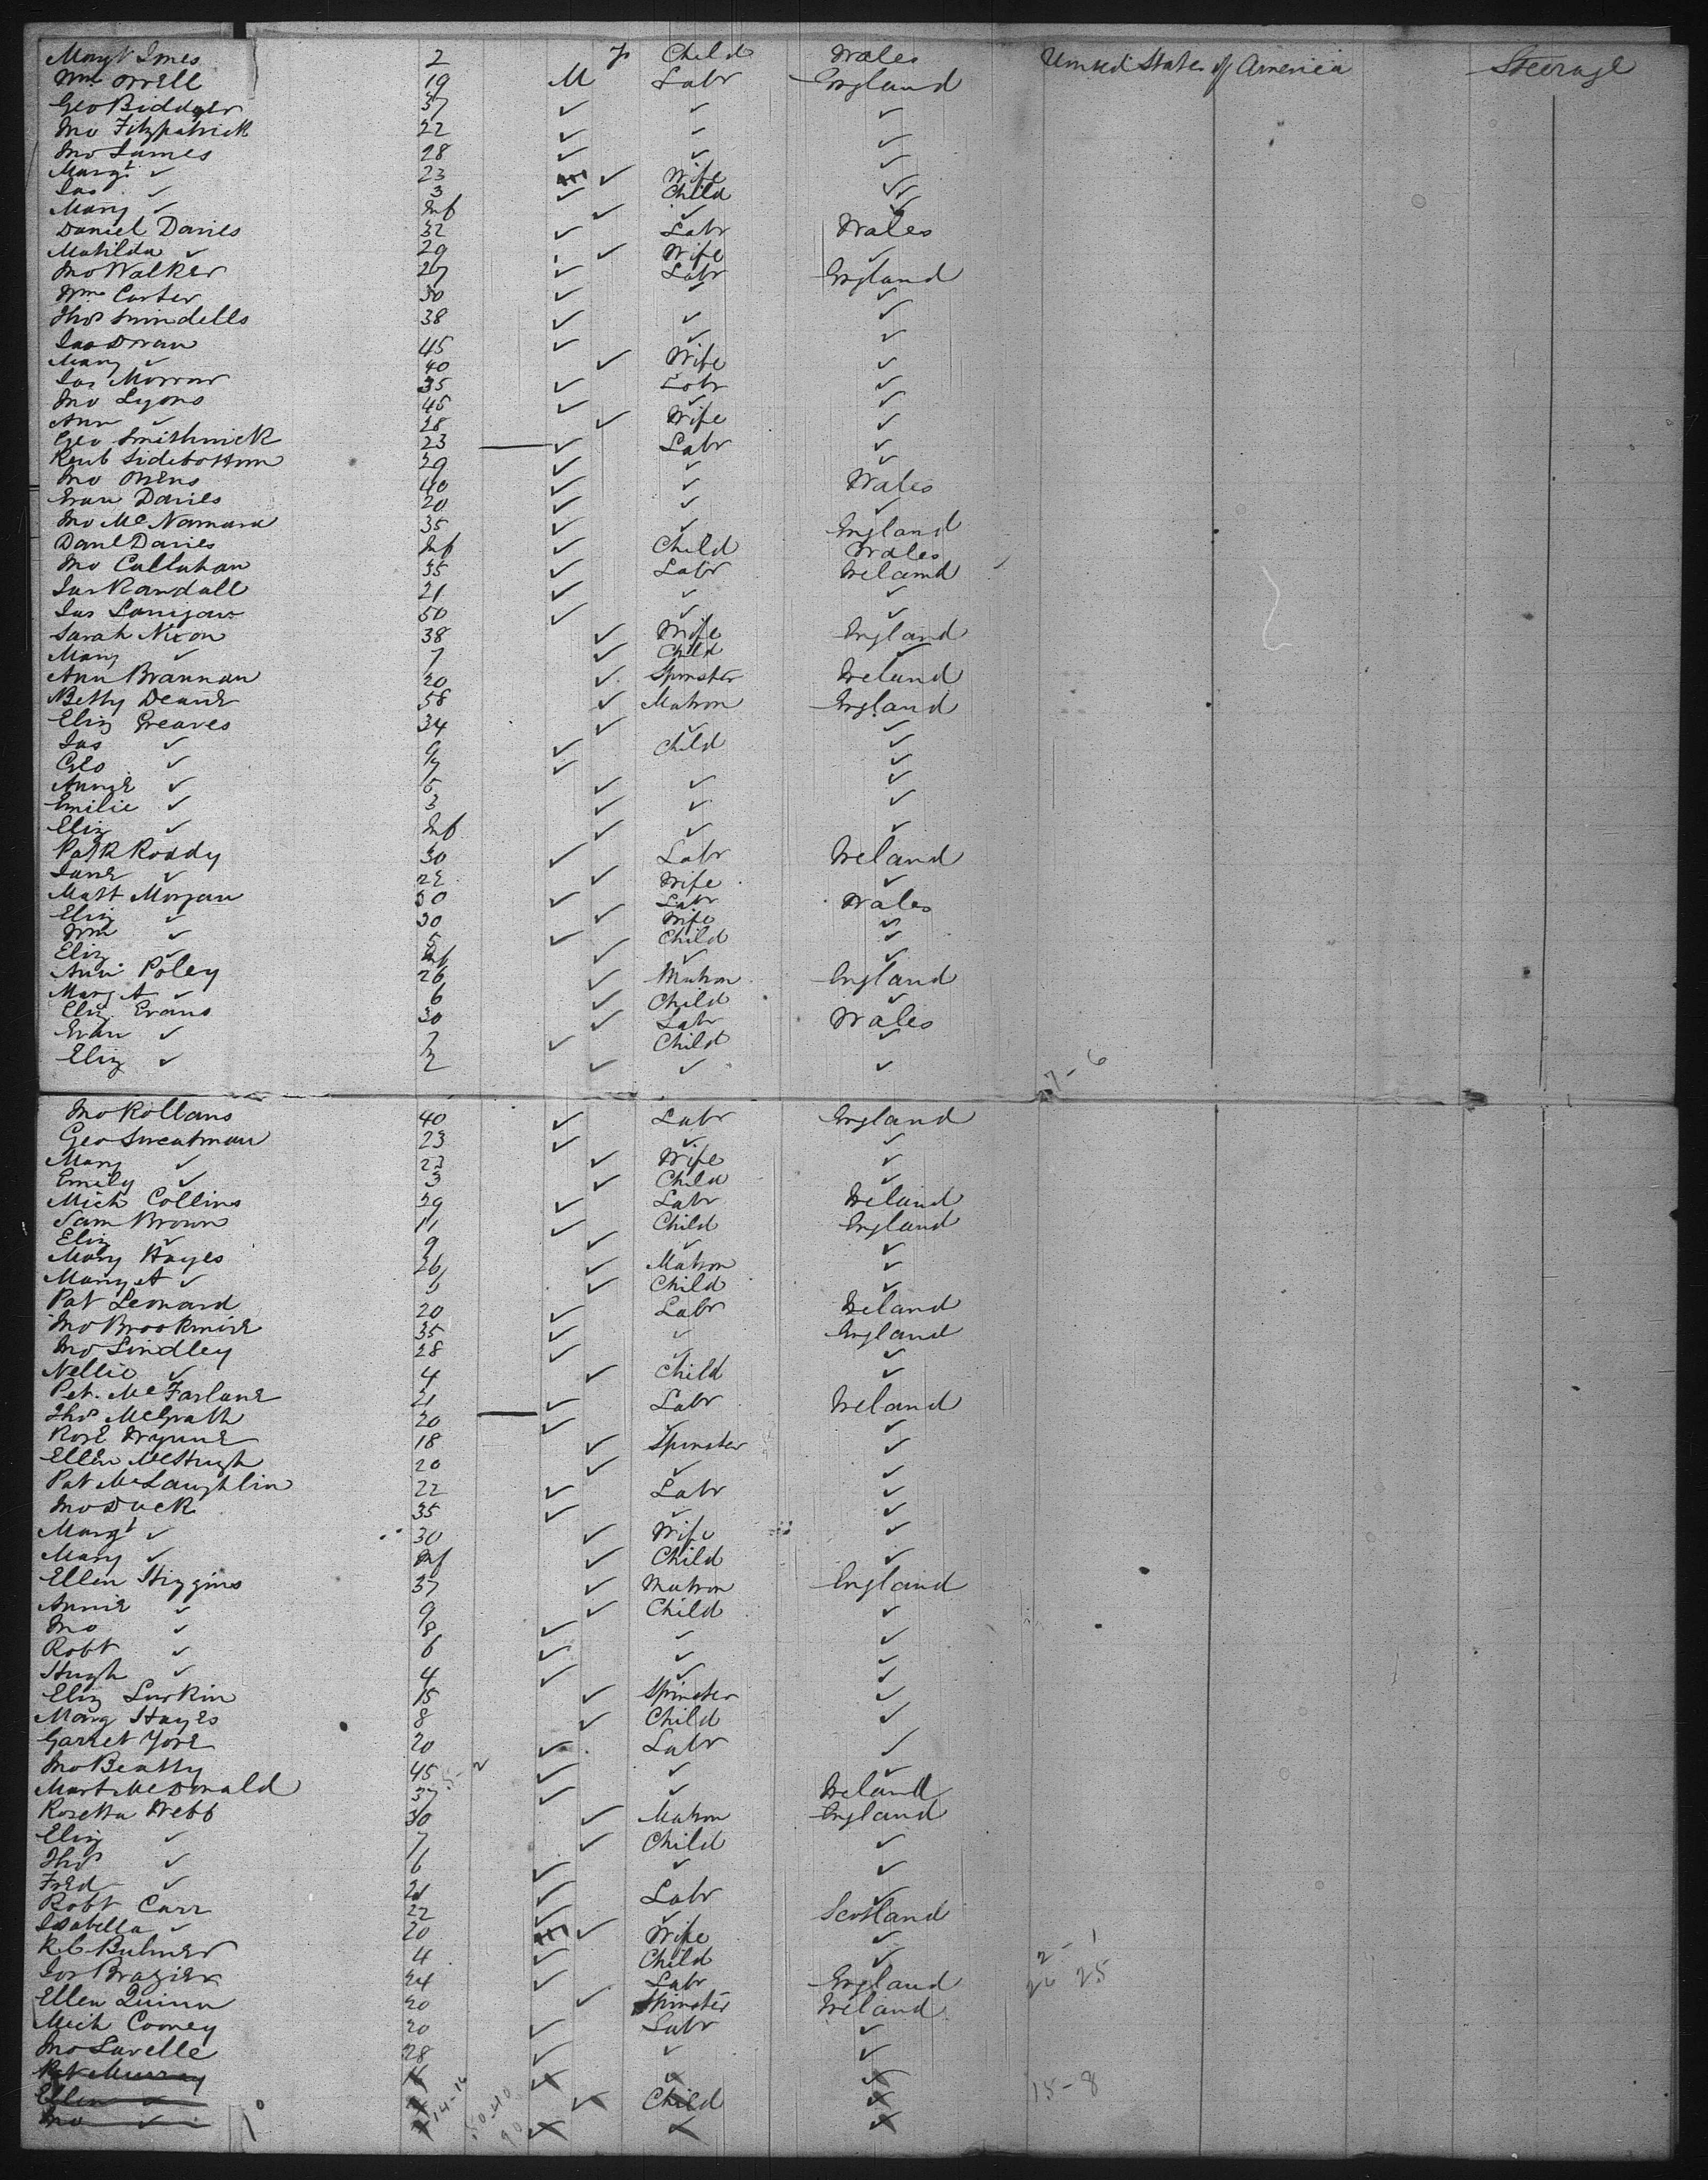 Margt Imes 2 F Child Wales United States of America Steerage
Wm Orrell 19 M Labr England
Geo Biddyer 37 ✓ ✓ ✓
Jno Fitzpatrick 22 ✓ ✓ ✓
Jno James 28 ✓ ✓ ✓
Margt ✓ 23 ✓ Wife ✓
Jas ✓ 3 ✓ Child ✓
Mary ✓ Inf ✓ ✓ ✓
Daniel Davies 32 ✓ Labr Wales
Matilda ✓ 29 ✓ Wife ✓
Jno Walker 27 ✓ Labr England
Wm Carter 30 ✓ ✓ ✓
Thos Swindells 38 ✓ ✓ ✓
Jas Doran 45 ✓ ✓ ✓
Mary ✓ 40 ✓ Wife ✓
Jas Morrow 35 ✓ Labr ✓
Jno Lyons 45 ✓ ✓ ✓
Ann ✓ 28 ✓ Wife ✓
Geo Smithwick 23 ✓ Labr ✓
Reub Sidebottom 29 ✓ ✓ ✓
Jno Owens 40 ✓ ✓ Wales
Evan Davies 20 ✓ ✓ ✓
Jno McNamara 35 ✓ ✓ England
Danl Davies Inf ✓ Child Wales
Jno Callahan 35 ✓ Labr Ireland
Jas Randall 21 ✓ ✓ ✓
Jas Lanigan 50 ✓ ✓ ✓
Sarah Nixon 38 ✓ Wife England
Mary ✓ 7 ✓ Child ✓
Ann Brannan 20 ✓ Spinster Ireland
Betty Deane 58 ✓ Matron England
Eliz Greaves 34 ✓ ✓ ✓
Jas ✓ 9 ✓ Child ✓
Geo ✓ 7 ✓ ✓
Annie ✓ 5 ✓ ✓ ✓
Emilie ✓ 3 ✓ ✓ ✓
Eliz ✓ Inf ✓ ✓ ✓
Patk Roddy 30 ✓ Labr Ireland
Jane ✓ 22 ✓ Wife ✓
Matt Morgan 30 ✓ Labr Wales
Eliz ✓ 30 ✓ Wife ✓
Wm ✓ 5 ✓ Child ✓
Eliz ✓ Inf ✓ ✓ ✓
Ann Poley 26 ✓ Matron England
Marg A ✓ 6 ✓ Child ✓
Eliz Evans 30 ✓ Labr Wales
Evan ✓ 7 ✓ Child ✓
Eliz ✓ 2 ✓ ✓ ✓
7-6
Jno Rollans 40 ✓ Labr England
Geo Sweatman 23 ✓ ✓ ✓
Mary ✓ 23 ✓ Wife ✓
Emily ✓ 3 ✓ Child ✓
Mich Collins 29 ✓ Labr Ireland
Sam Brown 11 ✓ Child England
Eliz ✓ 9 ✓ ✓ ✓
Mary Hayes 26 ✓ Matron ✓
Mary A ✓ 5 ✓ Child ✓
Pat Leonard 20 ✓ Labr Ireland
Jno Brookmire 35 ✓ ✓ England
Jno Lindley 28 ✓ ✓ ✓
Nellie ✓ 4 ✓ Child ✓
Pet. McFarlane 21 ✓ Labr Ireland
Thos McGrath 20 ✓ ✓ ✓
Rose Wynne 18 ✓ Spinster ✓
Ellen McHugh 20 ✓ ✓ ✓
Pat McLaughlin 22 ✓ Labr ✓
Jno Duck 35 ✓ ✓ ✓
Margt ✓ 30 ✓ Wife ✓
Mary ✓ Inf ✓ Child ✓
Ellen Higgins 37 ✓ Matron England
Annie ✓ 9 ✓ Child ✓
Jno ✓ 8 ✓ ✓ ✓
Robt ✓ 6 ✓ ✓ ✓
Hugh ✓ 4 ✓ ✓ ✓
Eliz Larkin 15 ✓ Spinster ✓
Mary Hayes 8 ✓ Child ✓
Garret Yore 20 ✓ Labr ✓
Jno Beatty 45 ✓ ✓ ✓
Mart McDonald 37 ✓ ✓ Ireland
Rosetta Webb 30 ✓ Matron England
Eliz ✓ 7 ✓ Child ✓
Thos ✓ 6 ✓ ✓ ✓
Fred ✓ 21 ✓ Labr ✓
Robt Carr 22 ✓ ✓ Scotland
Isabella ✓ 20 ✓ Wife ✓
R C Bulmer 4 ✓ Child ✓ 2-1
Jos Brazier 24 ✓ Labr England 26 25
Ellen Quinn 20 ✓ Spinster Ireland
Mich Cooney 20 ✓ Labr ✓
Jno Lavelle 28 ✓ ✓ ✓
Pat Murray
Ellen ✓ Child 15-8
Jno ✓ 14-14